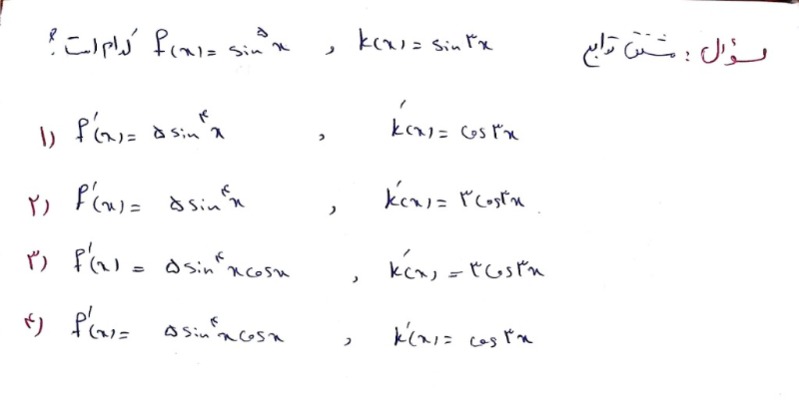 سؤال: مشتق توابع k(x) = sin ۳x , f(x) = sin^۵ x کدام است؟
۱) f'(x) = ۵ sin^۴ x , k'(x) = cos ۳x
۲) f'(x) = ۵ sin^۴ x , k'(x) = ۳ cos ۳x
۳) f'(x) = ۵ sin^۴ x cos x , k'(x) = ۳ cos ۳x
۴) f'(x) = ۵ sin^۴ x cos x , k'(x) = cos ۳x